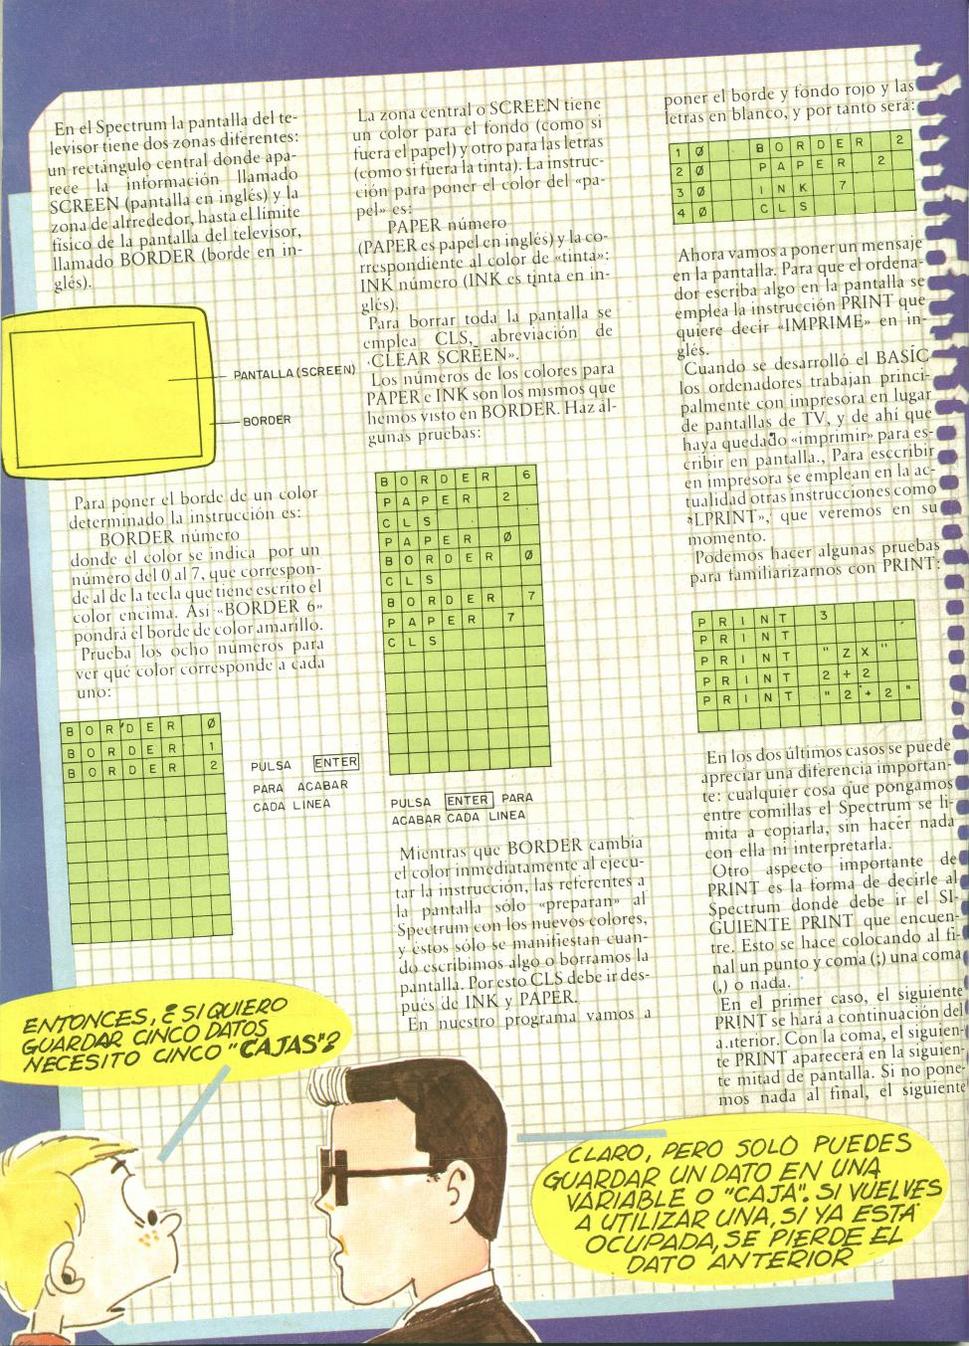 En el Spectrum la pantalla del te-
levisor tiene dos zonas diferentes:
un rectángulo central donde apa-
rece la información llamado
SCREEN (pantalla en inglés) y la
zona de alrrededor, hasta el límite
físico de la pantalla del televisor,
llamado BORDER (borde en in-
glés).
PANTALLA (SCREEN)
BORDER
Para poner el borde de un color
determinado la instrucción es:
BORDER número
donde el color se indica por un
número del 0 al 7, que correspon-
de al de la tecla que tiene escrito el
color encima. Así «BORDER 6»
pondrá el borde de color amarillo.
Prueba los ocho números para
ver qué color corresponde a cada
uno:
BORDER 0
BORDER 1
BORDER 2
PULSA ENTER
PARA ACABAR
CADA LINEA
La zona central o SCREEN tiene
un color para el fondo (como si
fuera el papel) y otro para las letras
(como si fuera la tinta). La instruc-
ción para poner el color del «pa-
pel» es:
PAPER número
(PAPER es papel en inglés) y la co-
rrespondiente al color de «tinta»:
INK número (INK es tinta en in-
glés).
Para borrar toda la pantalla se
emplea CLS, abreviación de
«CLEAR SCREEN».
Los números de los colores para
PAPER e INK son los mismos que
hemos visto en BORDER. Haz al-
gunas pruebas:
BORDER 6
PAPER 2
CLS
PAPER 0
BORDER 0
CLS
BORDER 7
PAPER 7
CLS
PULSA ENTER PARA
ACABAR CADA LINEA
Mientras que BORDER cambia
el color inmediatamente al ejecu-
tar la instrucción, las referentes a
la pantalla sólo «preparan» al
Spectrum con los nuevos colores,
y éstos sólo se manifiestan cuan-
do escribimos algo o borramos la
pantalla. Por esto CLS debe ir des-
pués de INK y PAPER.
En nuestro programa vamos a
poner el borde y fondo rojo y las
letras en blanco, y por tanto será:
10 BORDER 2
20 PAPER 2
30 INK 7
40 CLS
Ahora vamos a poner un mensaje
en la pantalla. Para que el ordena-
dor escriba algo en la pantalla se
emplea la instrucción PRINT que
quiere decir «IMPRIME» en in-
glés.
Cuando se desarrolló el BASIC
los ordenadores trabajan princi-
palmente con impresora en lugar
de pantallas de TV, y de ahí que
haya quedado «imprimir» para es-
cribir en pantalla., Para esccribir
en impresora se emplean en la ac-
tualidad otras instrucciones como
«LPRINT», que veremos en su
momento.
Podemos hacer algunas pruebas
para familiarizarnos con PRINT:
PRINT 3
PRINT
PRINT "ZX"
PRINT 2+2
PRINT "2+2"
En los dos últimos casos se puede
apreciar una diferencia importan-
te: cualquier cosa que pongamos
entre comillas el Spectrum se li-
mita a copiarla, sin hacer nada
con ella ni interpretarla.
Otro aspecto importante de
PRINT es la forma de decirle al
Spectrum donde debe ir el SI-
GUIENTE PRINT que encuen-
tre. Esto se hace colocando al fi-
nal un punto y coma (;) una coma
(,) o nada.
En el primer caso, el siguiente
PRINT se hará a continuación del
anterior. Con la coma, el siguien-
te PRINT aparecerá en la siguien-
te mitad de pantalla. Si no pone-
mos nada al final, el siguiente
ENTONCES, ¿SI QUIERO
GUARDAR CINCO DATOS
NECESITO CINCO "CAJAS"?
CLARO, PERO SOLO PUEDES
GUARDAR UN DATO EN UNA
VARIABLE O "CAJA". SI VUELVES
A UTILIZAR UNA, SI YA ESTA
OCUPADA, SE PIERDE EL
DATO ANTERIOR